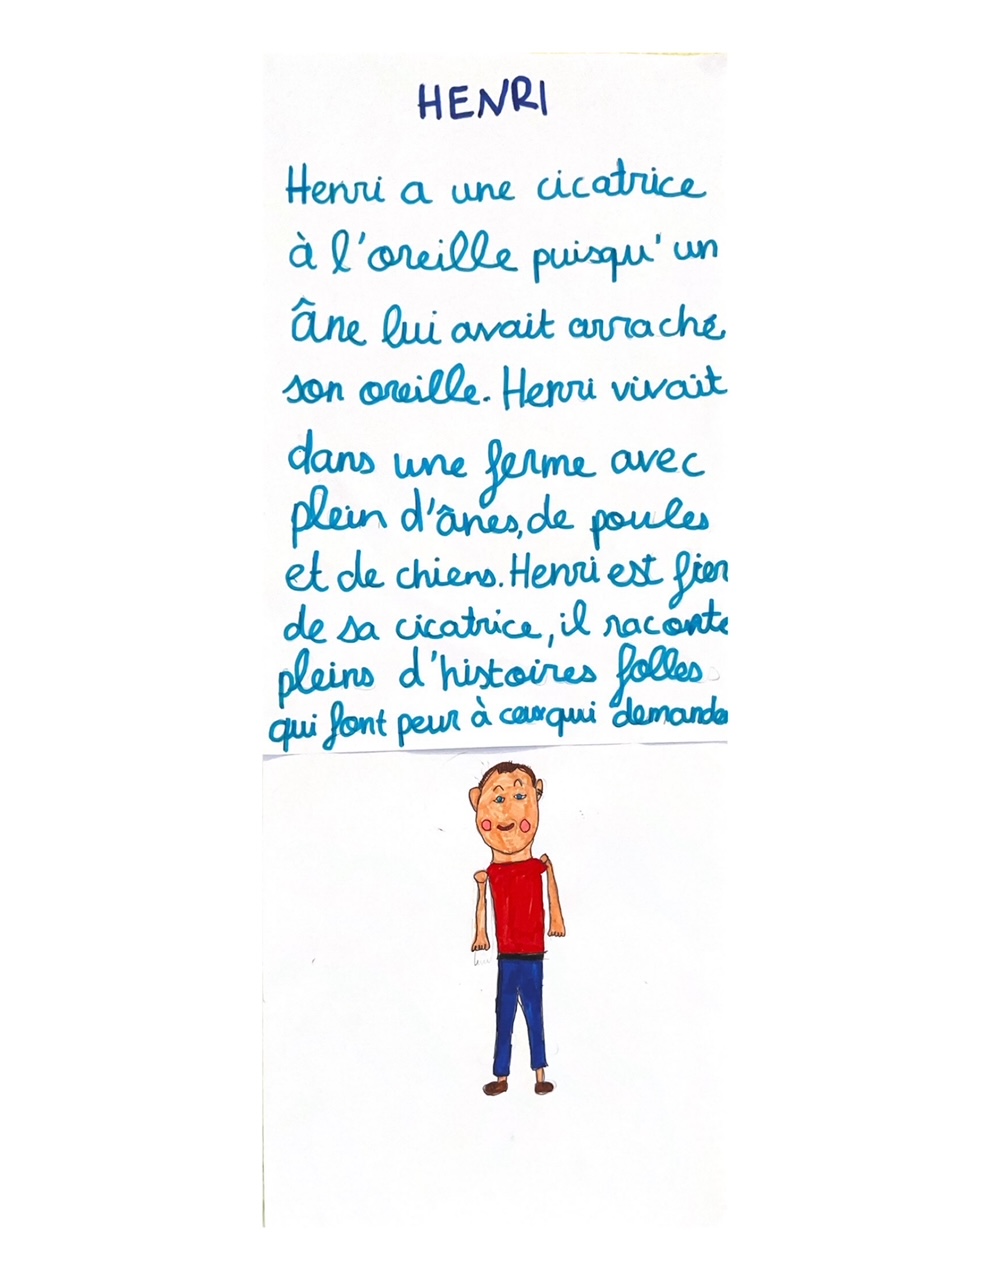 HENRI
Henri a une cicatrice
à l'oreille puisqu'un
âne lui avait arraché
son oreille. Henri vivait
dans une ferme avec
plein d'ânes, de poules
et de chiens. Henri est fier
de sa cicatrice, il raconte
pleins d'histoires folles
qui font peur à ceux qui demande